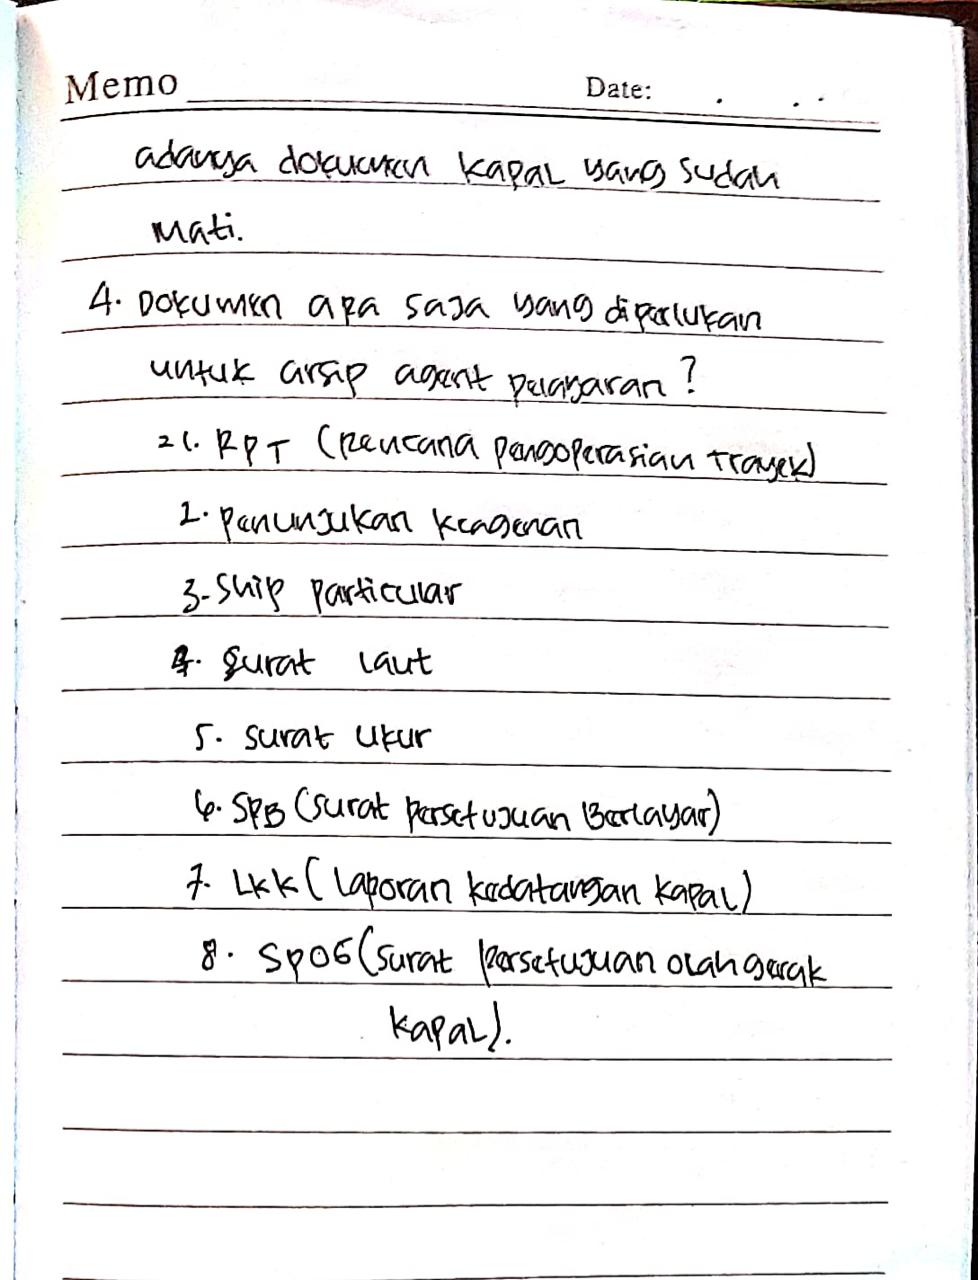 Memo Date:
adanya dokumen kapal yang sudah
mati.
4. Dokumen apa saja yang diperlukan
untuk arsip agent pelayaran ?
21. RPT (Rencana pengoperasian Trayek)
2. penunjukan keagenan
3. Ship particular
4. Surat laut
5. surat ukur
6. SPB (surat persetujuan Berlayar)
7. LKK ( Laporan kedatangan kapal)
8. SPOG (surat persetujuan olah gerak
kapal).